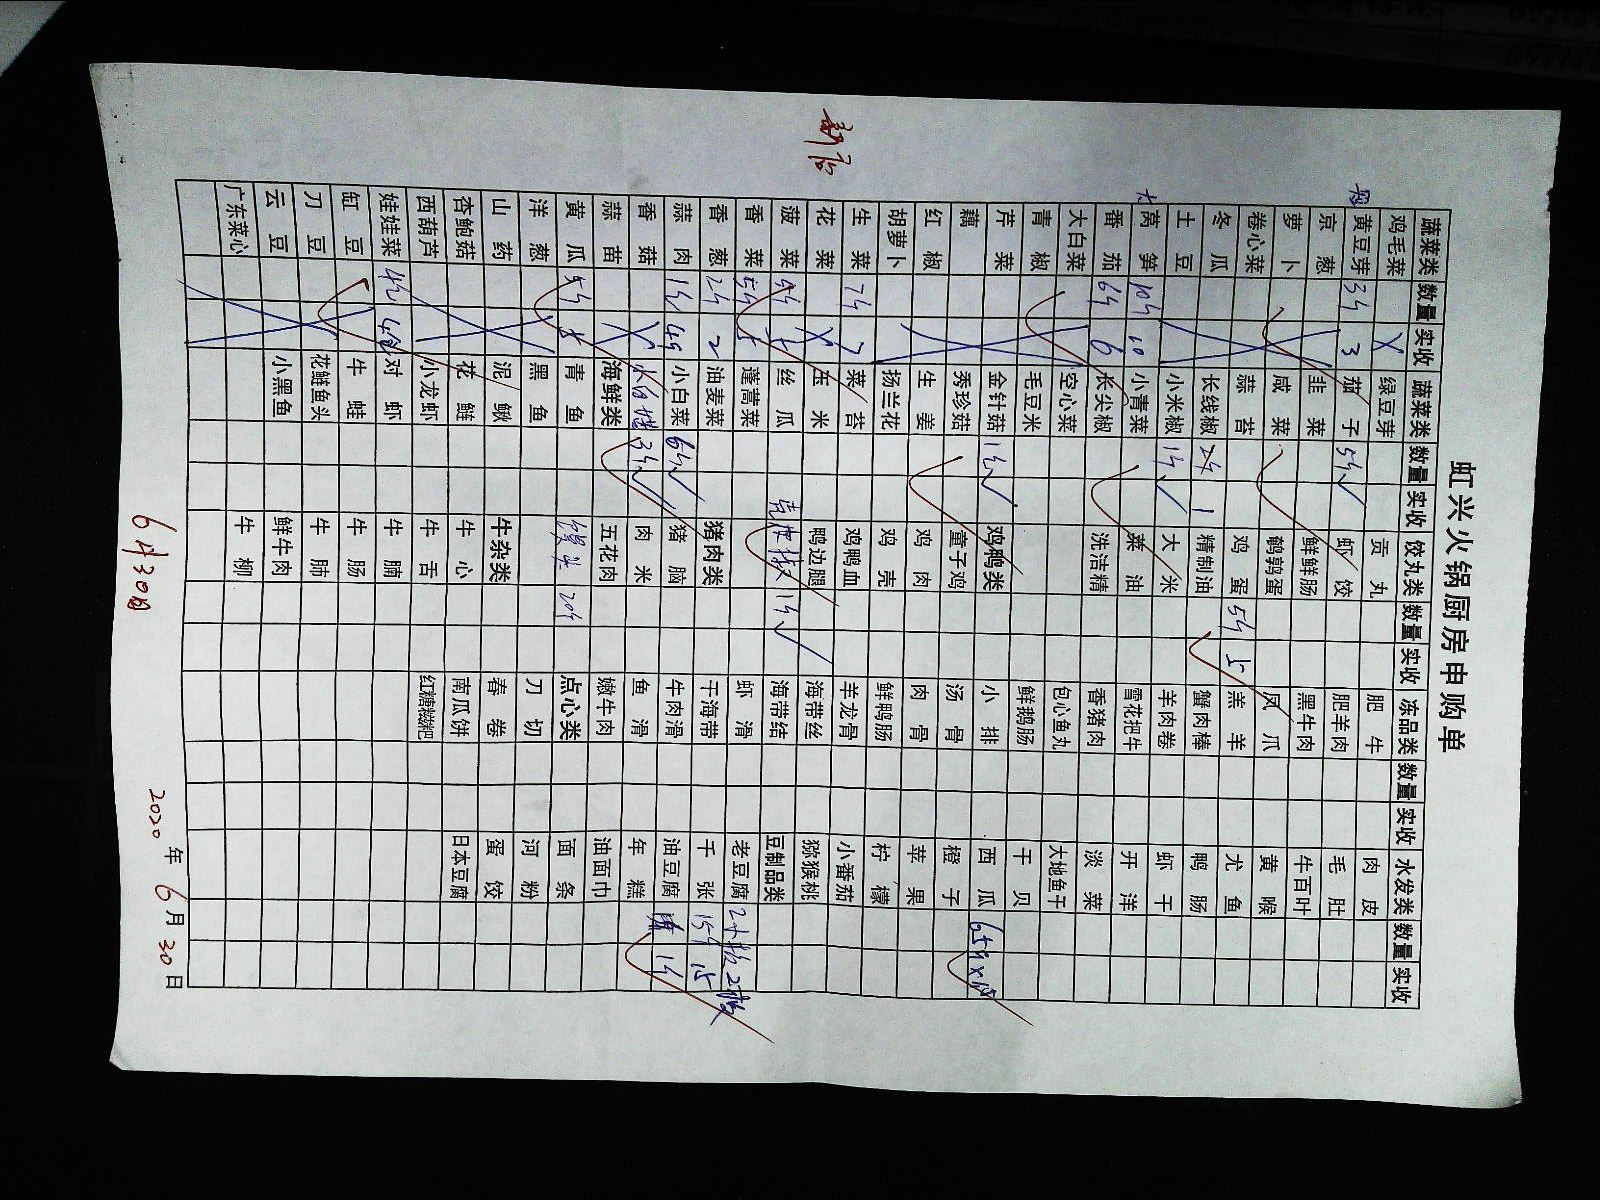 虹兴火锅厨房申购单
蔬菜类 数量 实收 蔬菜类 数量 实收 饺丸类 数量 实收 冻品类 数量 实收 水发类 数量 实收
鸡毛菜 绿豆芽 贡丸 肥牛 肉皮
黄豆芽 3斤 3 茄子 5斤 虾饺 肥羊肉 毛肚
京葱 韭菜 鲜鲜肠 黑牛肉 牛百叶
萝卜 咸菜 鹌鹑蛋 凤爪 黄喉
卷心菜 蒜苔 鸡蛋 5斤 5 羔羊 尤鱼
冬瓜 长线椒 2斤 1 精制油 蟹肉棒 鸭肠
土豆 小米椒 1斤 大米 羊肉卷 虾干
大 莴笋 10斤 10 小青菜 菜油 雪花把牛 开洋
番茄 6斤 6 长尖椒 洗洁精 香猪肉 淡菜
大白菜 空心菜 包心鱼丸 大地鱼干
青椒 毛豆米 鲜鹅肠 干贝
芹菜 金针菇 1包 鸡鸭类 小排 西瓜 65斤
藕 秀珍菇 童子鸡 汤骨 橙子
红椒 生姜 鸡肉 肉骨 苹果
胡萝卜 扬兰花 鸡壳 鲜鸭肠 柠檬
生菜 7斤 7 菜苔 鸡鸭血 羊龙骨 小番茄
花菜 玉米 鸭边腿 海带丝 猕猴桃
菠菜 丝瓜 1斤 海带结 豆制品类
香菜 蓬蒿菜 虾滑 老豆腐
香葱 2斤 2 油麦菜 猪肉类 干海带 千张 15斤 15
蒜肉 小白菜 6斤 猪脑 牛肉滑 油豆腐 1斤
香菇 3斤 肉米 鱼滑 年糕
蒜苗 海鲜类 五花肉 嫩牛肉 油面巾
黄瓜 5斤 5 青鱼 馒头 20个 点心类 面条
洋葱 黑鱼 刀切 河粉
山药 泥鳅 牛杂类 春卷 蛋饺
杏鲍菇 花鲢 牛心 南瓜饼 日本豆腐
西葫芦 小龙虾 牛舌 红糖糍粑
娃娃菜 4包 对虾 牛腩
缸豆 牛蛙 牛肠
刀豆 花鲢鱼头 牛肺
云豆 小黑鱼 鲜牛肉
广东菜心 牛柳
新店
6月30日
2020年6月30日